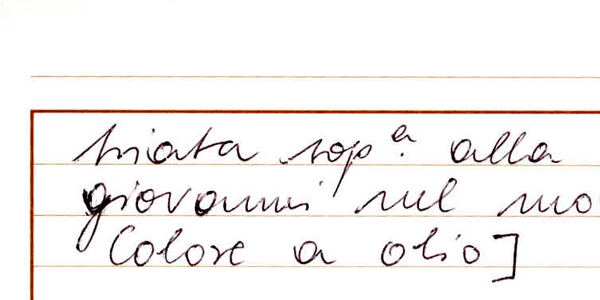 sop.ª alla
giovanni sul mo
Colore a olio]